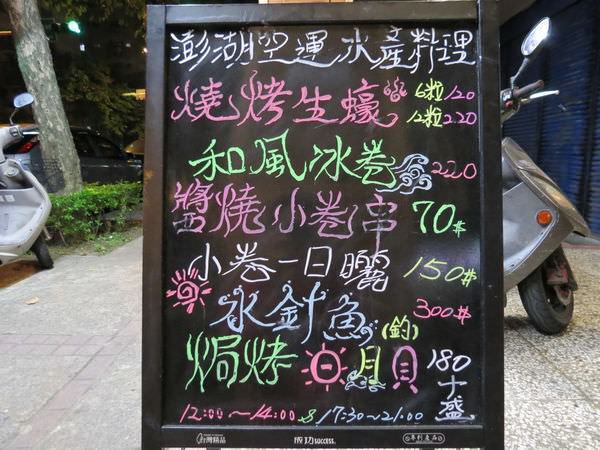 澎湖空運水產料理
燒烤生蠔 6粒120
12粒220
和風冰卷 220
醬燒小卷串 70$
小卷一日曬 150$
水針魚(釣) 300$
焗烤日月貝 180
十盛
12:00~14:00 & 17:30~21:00
台灣精品 成功 success. 專利產品